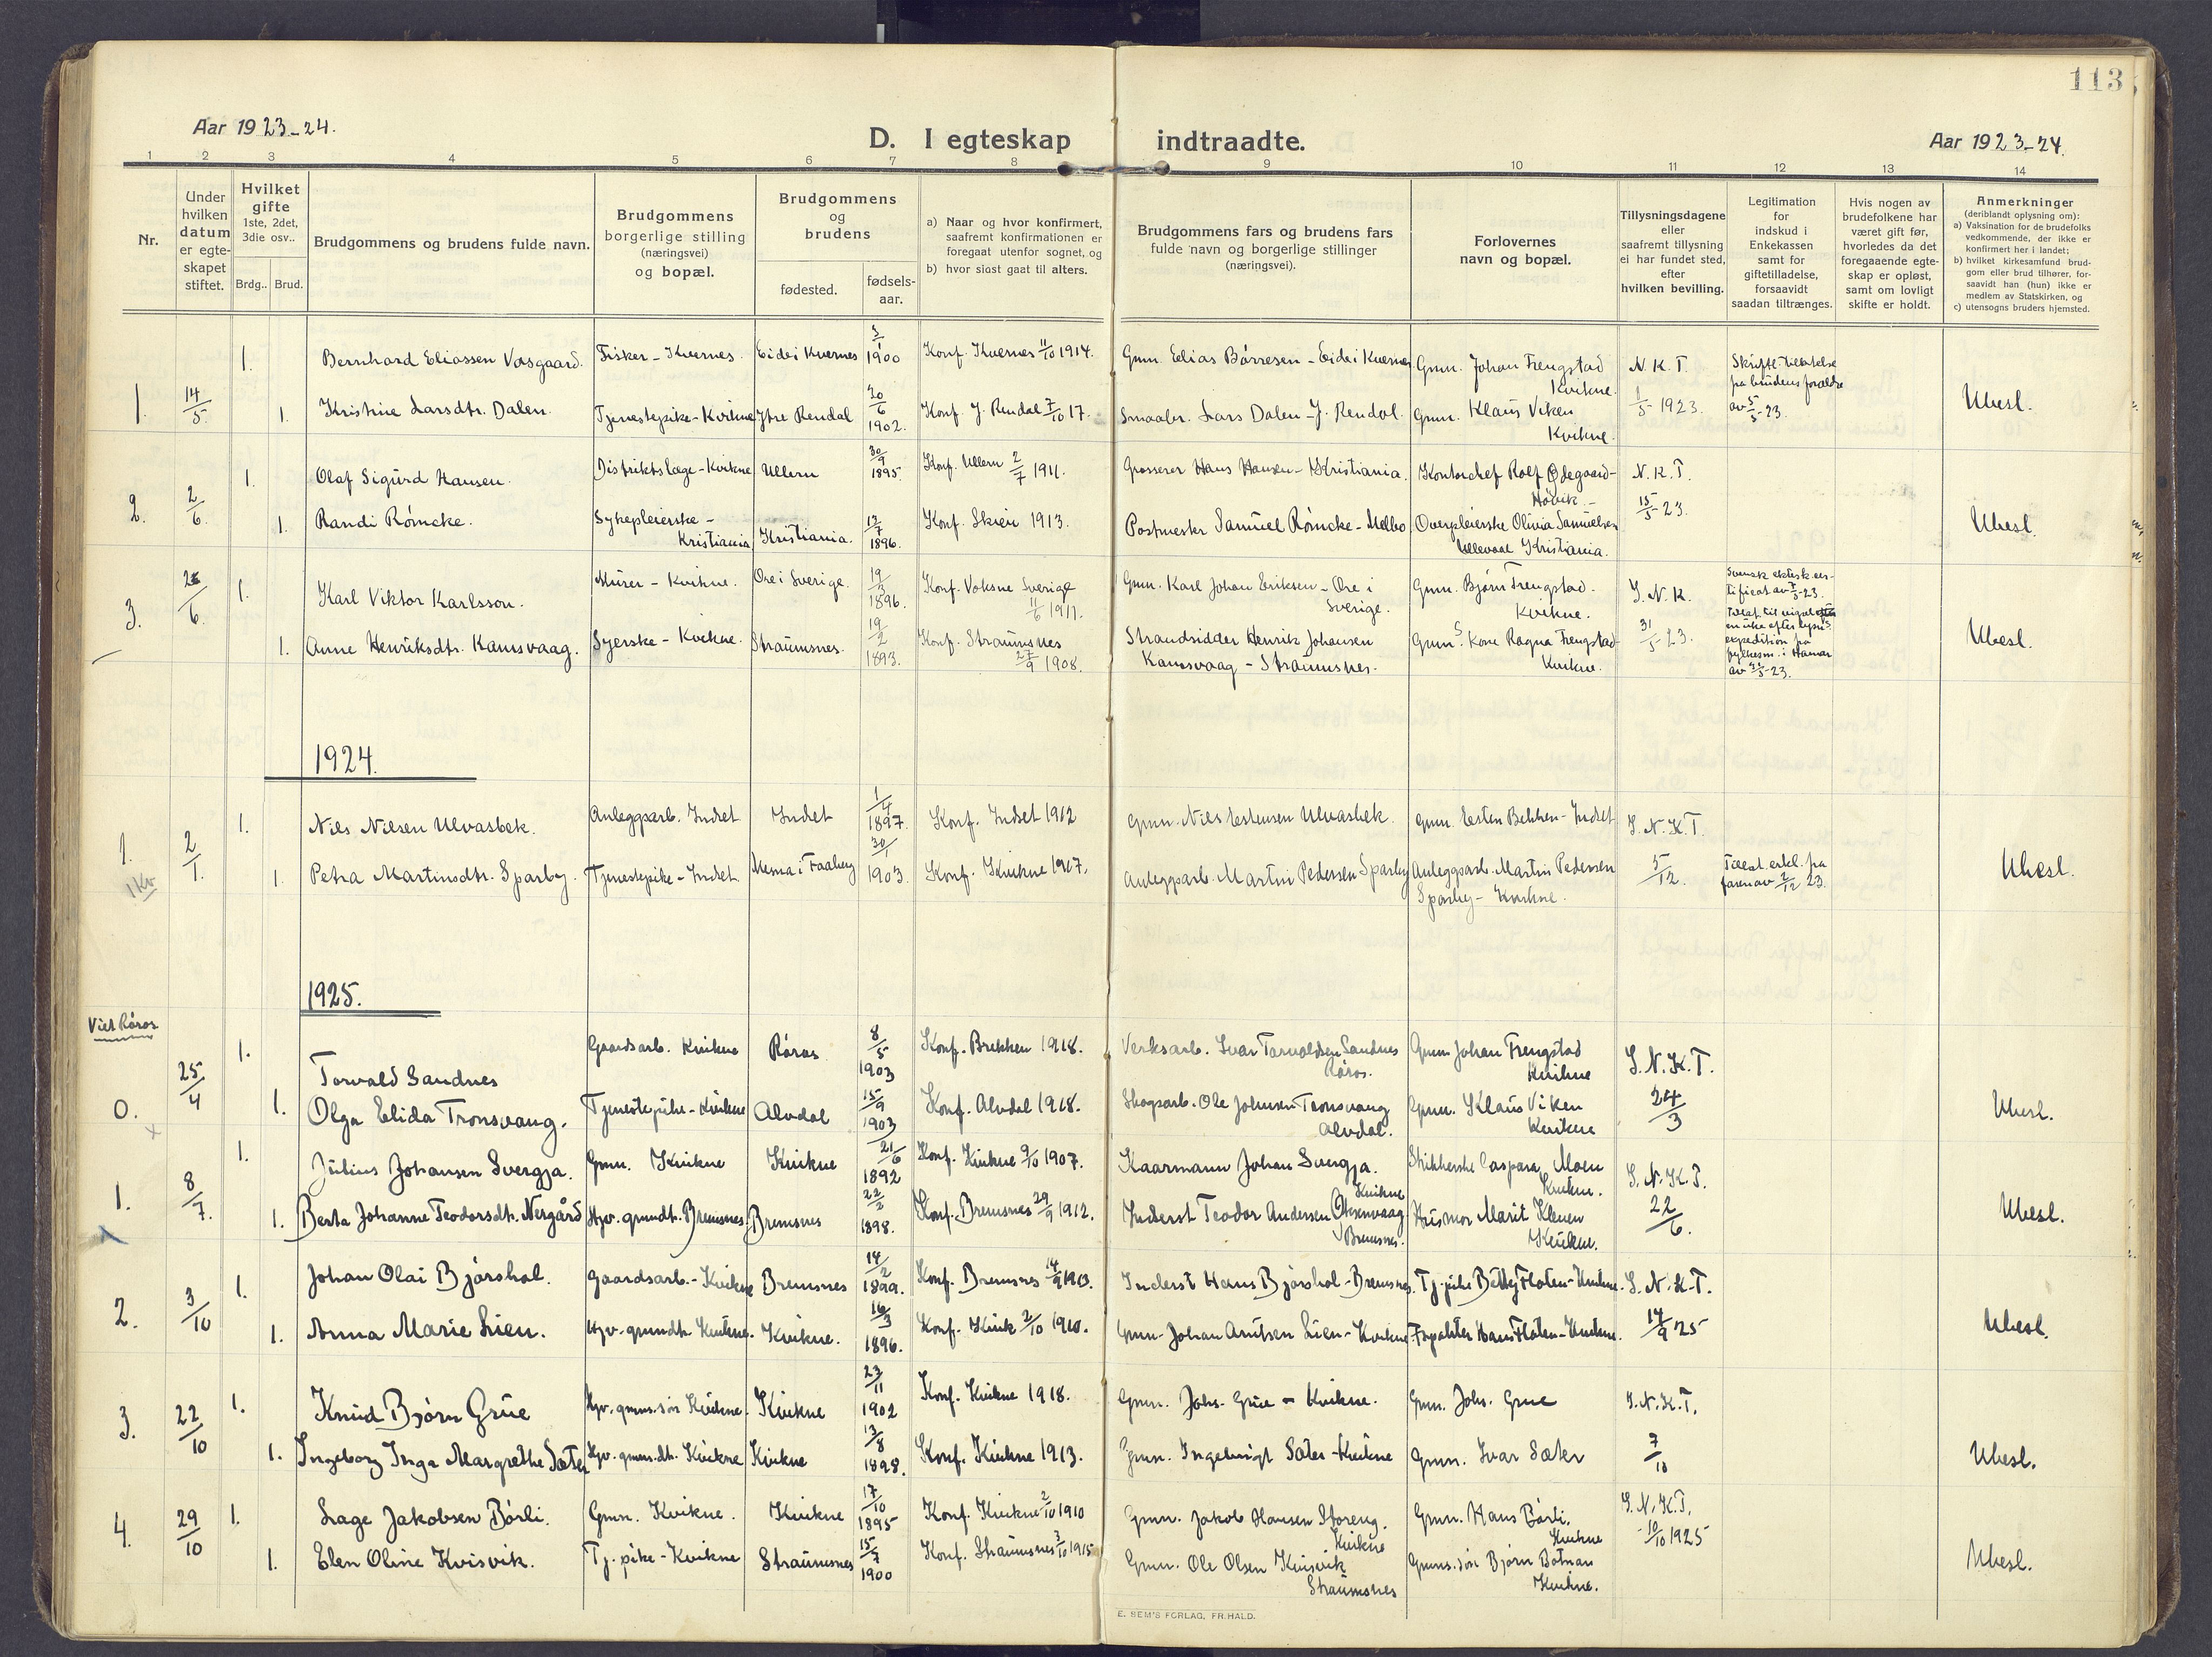 113
Aar 1923-24.
D. I egteskap indtraadte.
Aar 1923-24.
1 2 3 4 5 6 7 8 9 10 11 12 13 14
Nr.
Under hvilken datum er egteskapet stiftet.
Hvilket gifte 1ste, 2det, 3die osv..
Brdg.. Brud.
Brudgommens og brudens fulde navn.
Brudgommens borgerlige stilling (næringsvei) og bopæl.
Brudgommens og brudens
fødested.
fødsels-aar.
a) Naar og hvor konfirmert, saafremt konfirmationen er foregaat utenfor sognet, og
b) hvor sidst gaat til alters.
Brudgommens fars og brudens fars fulde navn og borgerlige stillinger (næringsvei).
Forlovernes navn og bopæl.
Tillysningsdagene eller saafremt tillysning ei har fundet sted, efter hvilken bevilling.
Legitimation for indskud i Enkekassen samt for giftetilladelse, forsaavidt saadan tiltrænges.
Hvis nogen av brudefolkene har været gift før, hvorledes da det foregaaende egteskap er opløst, samt om lovligt skifte er holdt.
Anmerkninger (deriblandt oplysning om):
a) Vaksination for de brudefolks vedkommende, der ikke er konfirmert her i landet;
b) hvilket kirkesamfund brudgom eller brud tilhører, forsaavidt han (hun) ikke er medlem av Statskirken, og
c) utensogns bruders hjemsted.
1. Bernhard Eliassen Vasgaard. Fisker - Kvernes. Eide i Kvernes 1900 Konf. Kvernes 11/10 1914. Gmn. Elias Børresen - Eide i Kvernes Gmn. Johan Frengstad Kvikne. N. K. T. Skriftl. tillatelse fra brudens forældre av 5/5-23.
1. 14/5 1. Kristine Larsdtr. Dalen. Tjenestepike - Kvikne Ytre Rendal 20/6 1902. Konf. Y. Rendal 7/10 17. Smaabr. Lars Dalen - Y. Rendal. Gmn. Klaus Viken Kvikne. 1/5 1923. Ubesl.
1. Olaf Sigurd Hansen. Distriktslæge - Kvikne Ullern 30/9 1895. Konf. Ullern 2/7 1911. Grosserer Hans Hansen - Kristiania. Kontorchef Rolf Ødegaard - Høvik. - N. K. T.
2. 2/6. 1. Randi Römcke. Sykepleierske - Kristiania Kristiania. 13/7 1896. Konf. Skien 1913. Postmester Samuel Römcke - Melbo Overpleierske Olivia Samuelsen Ullevaal Kristiania. 15/5 23. Ubesl.
1. Karl Viktor Karlsson. Murer - Kvikne. Ore i Sverige. 19/3 1896. Konf. Voksne Sverige 11/6 1911. Gmn. Karl Johan Eriksen - Ore i Sverige. Gmn. Bjørn Frengstad. Kvikne. S. N. K.
3. /6. 1. Anne Henriksdtr. Kamsvaag. Syerske - Kvikne. Straumsnes. 19/2 1893. Konf. Straumsnes 27/9 1908. Strandsidder Henrik Johansen Kamsvaag - Straumsnes. Gmn.s kone Ragna Frengstad Kvikne. 31/5 23. Ubesl.
1924.
1. Nils Nilsen Ulvasbek. Anleggsarb. Indset Indset 1/4 1897. Konf. Indset 1912 Gmn. Nils Estensen Ulvasbek. Gmn. Esten Bekken - Indset S. N. K. T.
1. 2/1. 1. Petra Martinsdtr. Sparby. Tjenestepike - Indset Mesna i Faaberg 30/1 1903. Konf. Kvikne 1917. Anleggsarb. Martin Pedersen Sparby Anleggsarb. Martin Pedersen Sparby - Kvikne. 5/12. Tillat. erkl. fra faren av 2/12 23. Ubesl.
1 Kv
1925.
Viet Röros
1. Torvald Sandnes Gaardsarb. Kvikne Röros 8/5 1903 Konf. Brekken 1918. Verksarb. Ivar Torvaldsen Sandnes Röros. Gmn Johan Frengstad Kvikne S. N. K. T.
0. 25/4 1. Olga Elida Tronsvang. Tjenestepike - Kvikne Alvdal 15/9 1903 Konf. Alvdal 1918. Skogsarb. Ole Johnsen Tronsvang Alvdal. Gmn. Klaus Viken Kvikne 24/3 Ubesl.
1. Julius Johansen Svergja. Gmn. Kvikne Kvikne 21/6 1892 Konf. Kvikne 9/10 1907. Kaarmann Johan Svergja. Kvikne Strikkerske Caspara Moen Kvikne. S. N. K. T.
1. 8/7. 1. Berta Johanne Teodorsdtr. Nergård Hjv. grmdtr. Bremsnes. Bremsnes 22/2 1898. Konf. Bremsnes 29/9 1912. Inderst Teodor Andersen Bremsnes. Husmor Marit Kleven Kvikne. 22/6. Ubesl.
1. Johan Olai Bjørshol. Gaardsarb. - Kvikne Bremsnes 14/2 1899. Konf. Bremsnes 14/9 1913. Inderst Hans Bjørshol - Bremsnes. Tj. pike Betty Floten - Kvikne. S. N. K. T.
2. 3/10 1. Anna Marie Lien. Hjv. grmndtr. Kvikne. Kvikne. 16/3 1896. Konf. Kvik 2/10 1910. Gmn. Johan Arntsen Lien - Kvikne. Forpakter Hans Floten - Kvikne. 14/9 25 Ubesl.
1. Knud Bjørn Grue Hjv. gmns. søn Kvikne. Kvikne 23/11 1902 Konf. Kvikne 1918. Gmn. Johs. Grue - Kvikne. Gmn. Johs. Grue S. N. K. T.
3. 22/10 1. Ingeborg Inga Margrethe Sæter Hjv. gmns. dtr. Kvikne Kvikne 13/8 1898. Konf. Kvikne 1913. Gmn. Ingebrigt Sæter - Kvikne Gmn. Ivar Sæter 7/10 Ubesl.
1. Lage Jakobsen Børli. Gmn. Kvikne. Kvikne 17/10 1895 Konf. Kvikne 2/10 1910 Gmn. Jakob Hansen Storeng. Kvikne Gmn. Hans Børli. Kvikne S. N. K. T.
4. 29/10 1. Elen Oline Kvisvik. Tj. pike - Kvikne Straumsnes 15/7 1900 Konf. Straumsnes 3/10 1915 Gmn. Ole Olsen Kvisvik Straumsnes Gmns. søn Bjørn Botnan Kvikne. 10/10 1925 Ubesl.
E. SEM'S FORLAG, FR.HALD.